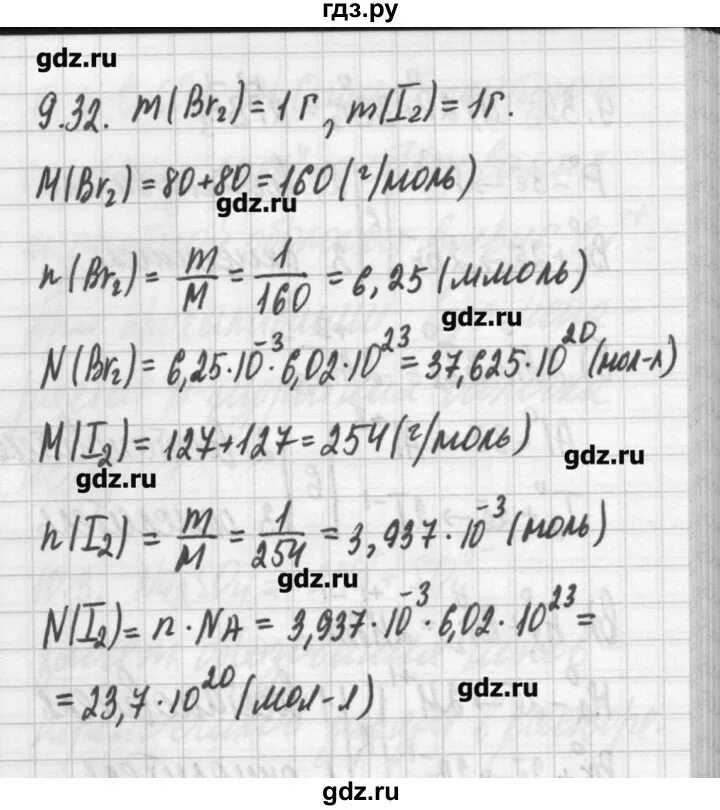 гдз.ру
gdz.ru
9.32. m(Br₂) = 1 г, m(I₂) = 1 г.
M(Br₂) = 80+80 = 160 (г/моль)
gdz.ru
n(Br₂) = m/M = 1/160 = 6,25 (ммоль)
gdz.ru
N(Br₂) = 6,25·10⁻³·6,02·10²³ = 37,625·10²⁰ (мол-л)
M(I₂) = 127+127 = 254 (г/моль)
gdz.ru
gdz.ru
n(I₂) = m/M = 1/254 = 3,937·10⁻³ (моль)
gdz.ru
N(I₂) = n·NA = 3,937·10⁻³·6,02·10²³ =
= 23,7·10²⁰ (мол-л)
gdz.ru
gdz.ru